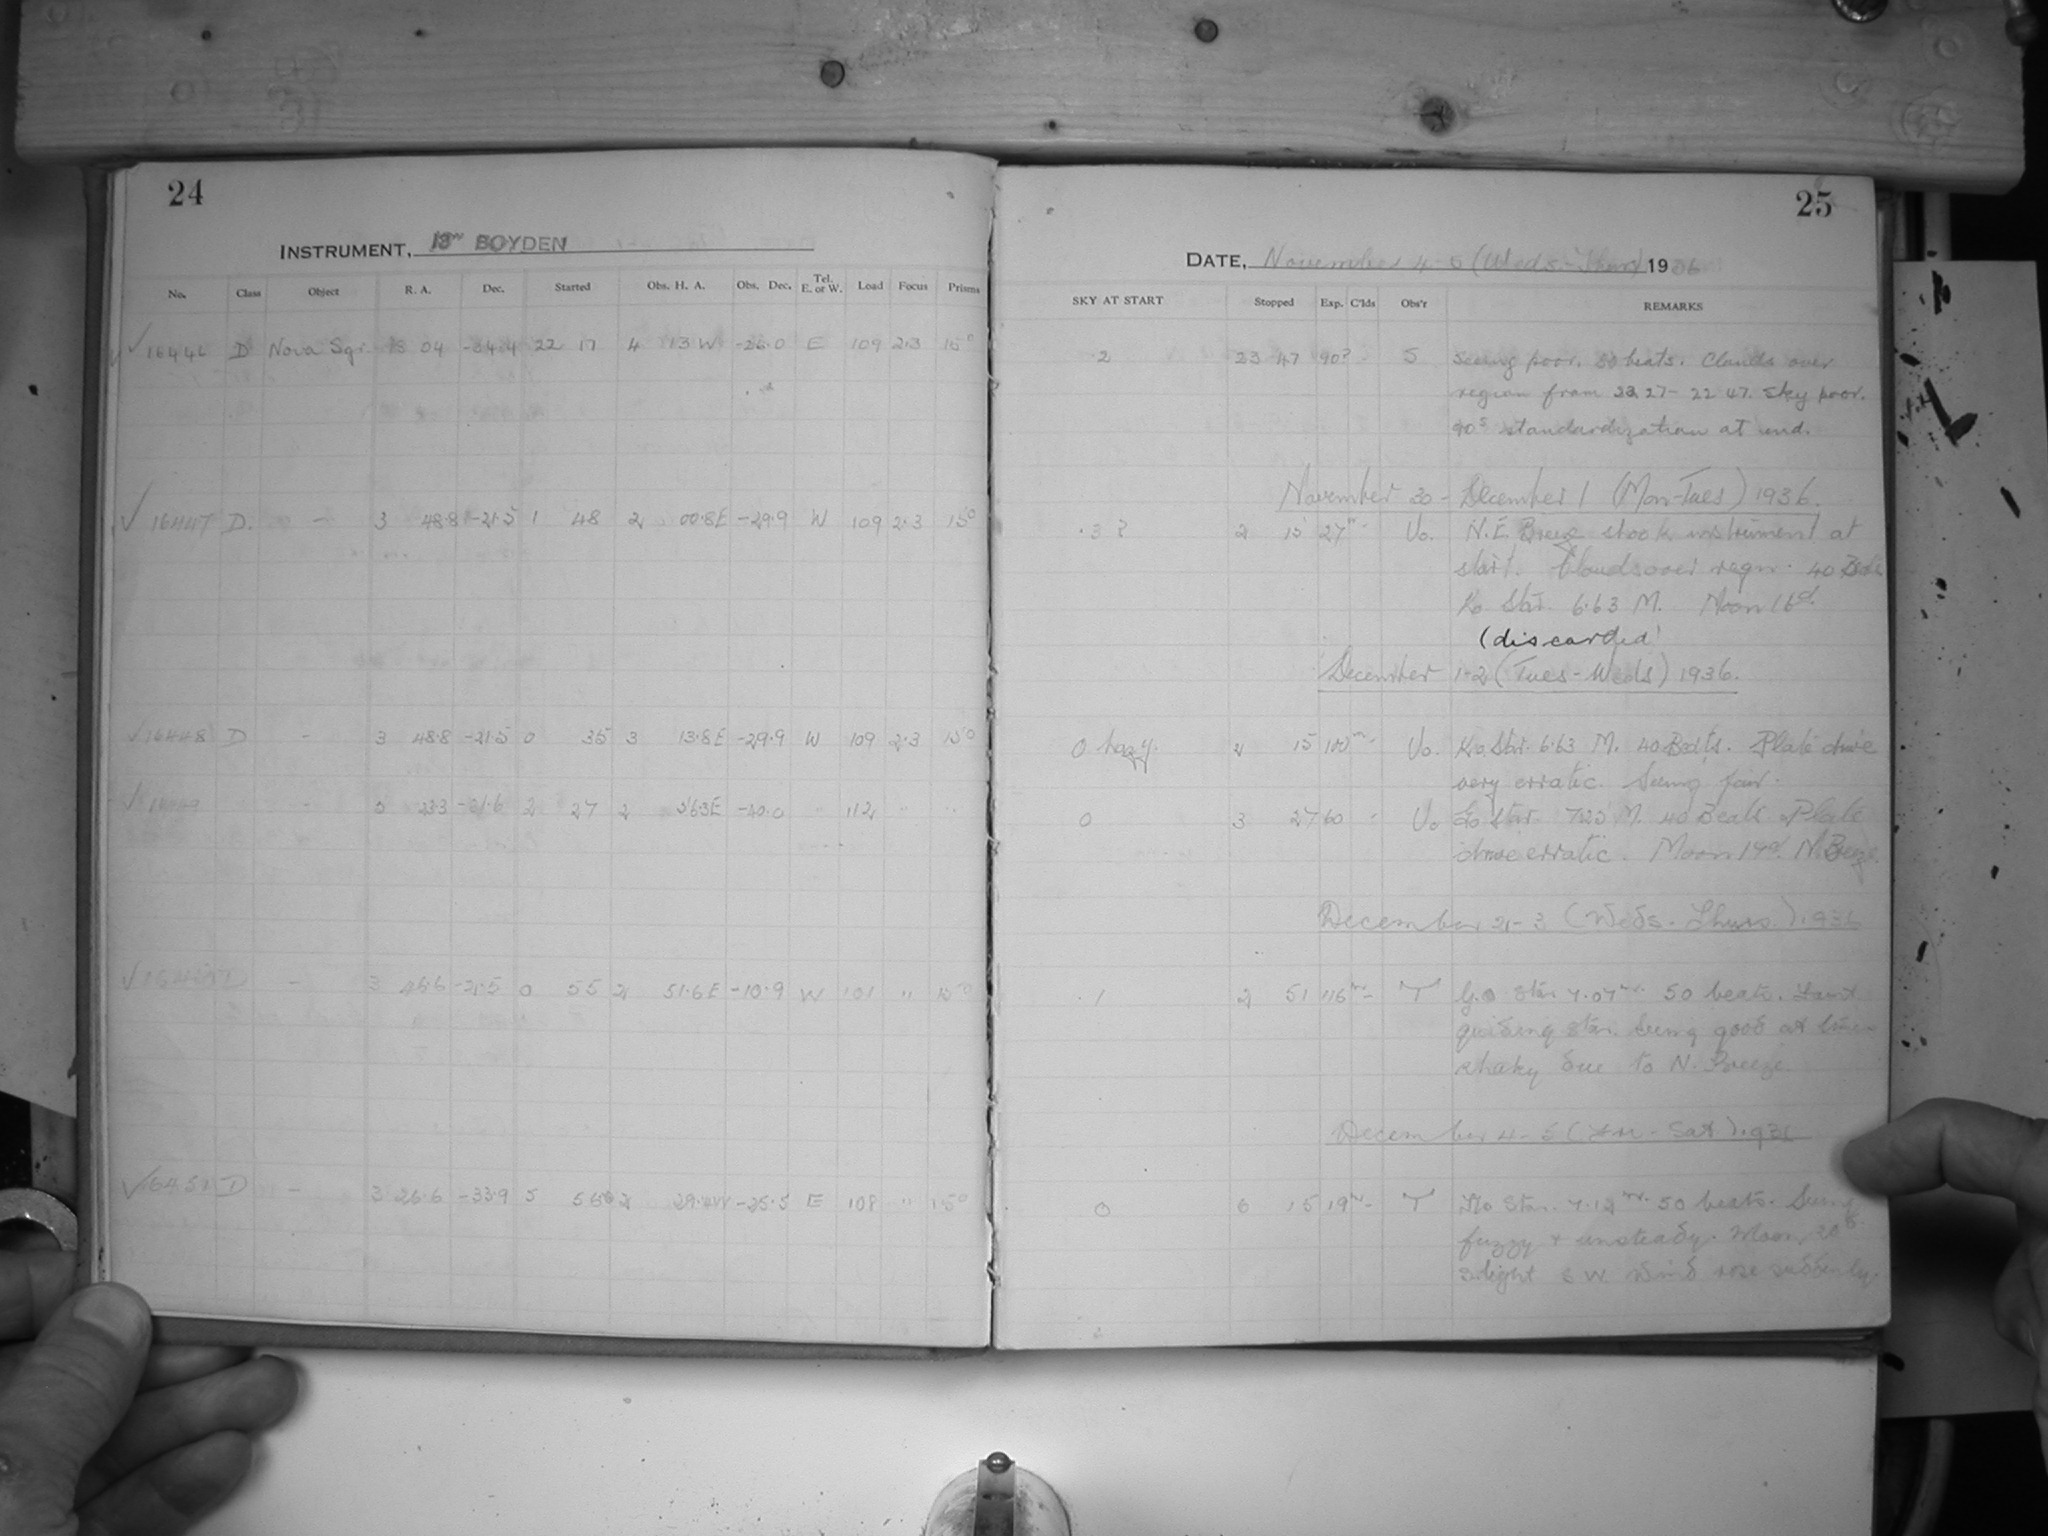 24
INSTRUMENT, 13" BOYDEN
No. Class Object R. A. Dec. Started Obs. H. A. Obs. Dec. Tel. E. or W. Load Focus Prisms
✓ 16446 D Nova Sgr. 18 04 -34.4 22 17 4 13 W -26.0 E 109 2.3 15°
✓ 16447 D. - 3 48.8 -21.5 1 48 2 00.8E -29.9 W 109 2.3 15°
✓ 16448 D - 3 48.8 -21.5 0 35 3 13.8E -29.9 W 109 2.3 15°
✓ - -21.6 2 27 2 " 112 " "
✓ - 3 46.6 -21.5 0 55 2 51.6E -10.9 W 101 " 15°
✓ 16451 D - 3 26.6 -33.9 5 2 -25.5 E 108 " 15°
25
DATE, November 4-5 (Weds-Thur) 1936
SKY AT START Stopped Exp. C'lds Obs'r REMARKS
2 23 47 90? - S Seeing poor. 50 beats. Clouds over
region from 22 27 - 22 47. Sky poor.
90s standardization at end.
November 30 - December 1 (Mon-Tues) 1936.
.3? 2 15 27m - Uo. N.E. Breeze shook instrument at
start. Clouds over regn. 40 Beats
Ko Star. 6.63 M. Moon 16d.
(discarded)
December 1-2 (Tues-Weds) 1936.
0 hazy. 2 15 100m - Uo. Ko Star. 6.63 M. 40 Beats. Plate drive
very erratic. Seeing fair.
0 3 27 60 - Uo Star M. 40 Beats Plate
drive erratic. Moon N. Breeze.
December 2-3 (Weds.-Thurs.) 1936
.1 2 51 116m - T Star 7.07m. 50 beats. Faint
guiding star. Seeing good at times
shaky due to N. Breeze.
December 4-5 (Fri-Sat.) 1936
0 6 15 19m - T Star. 7.12m. 50 beats. Seeing
fuzzy + unsteady. Moon 20d.
Slight S W wind rose suddenly.